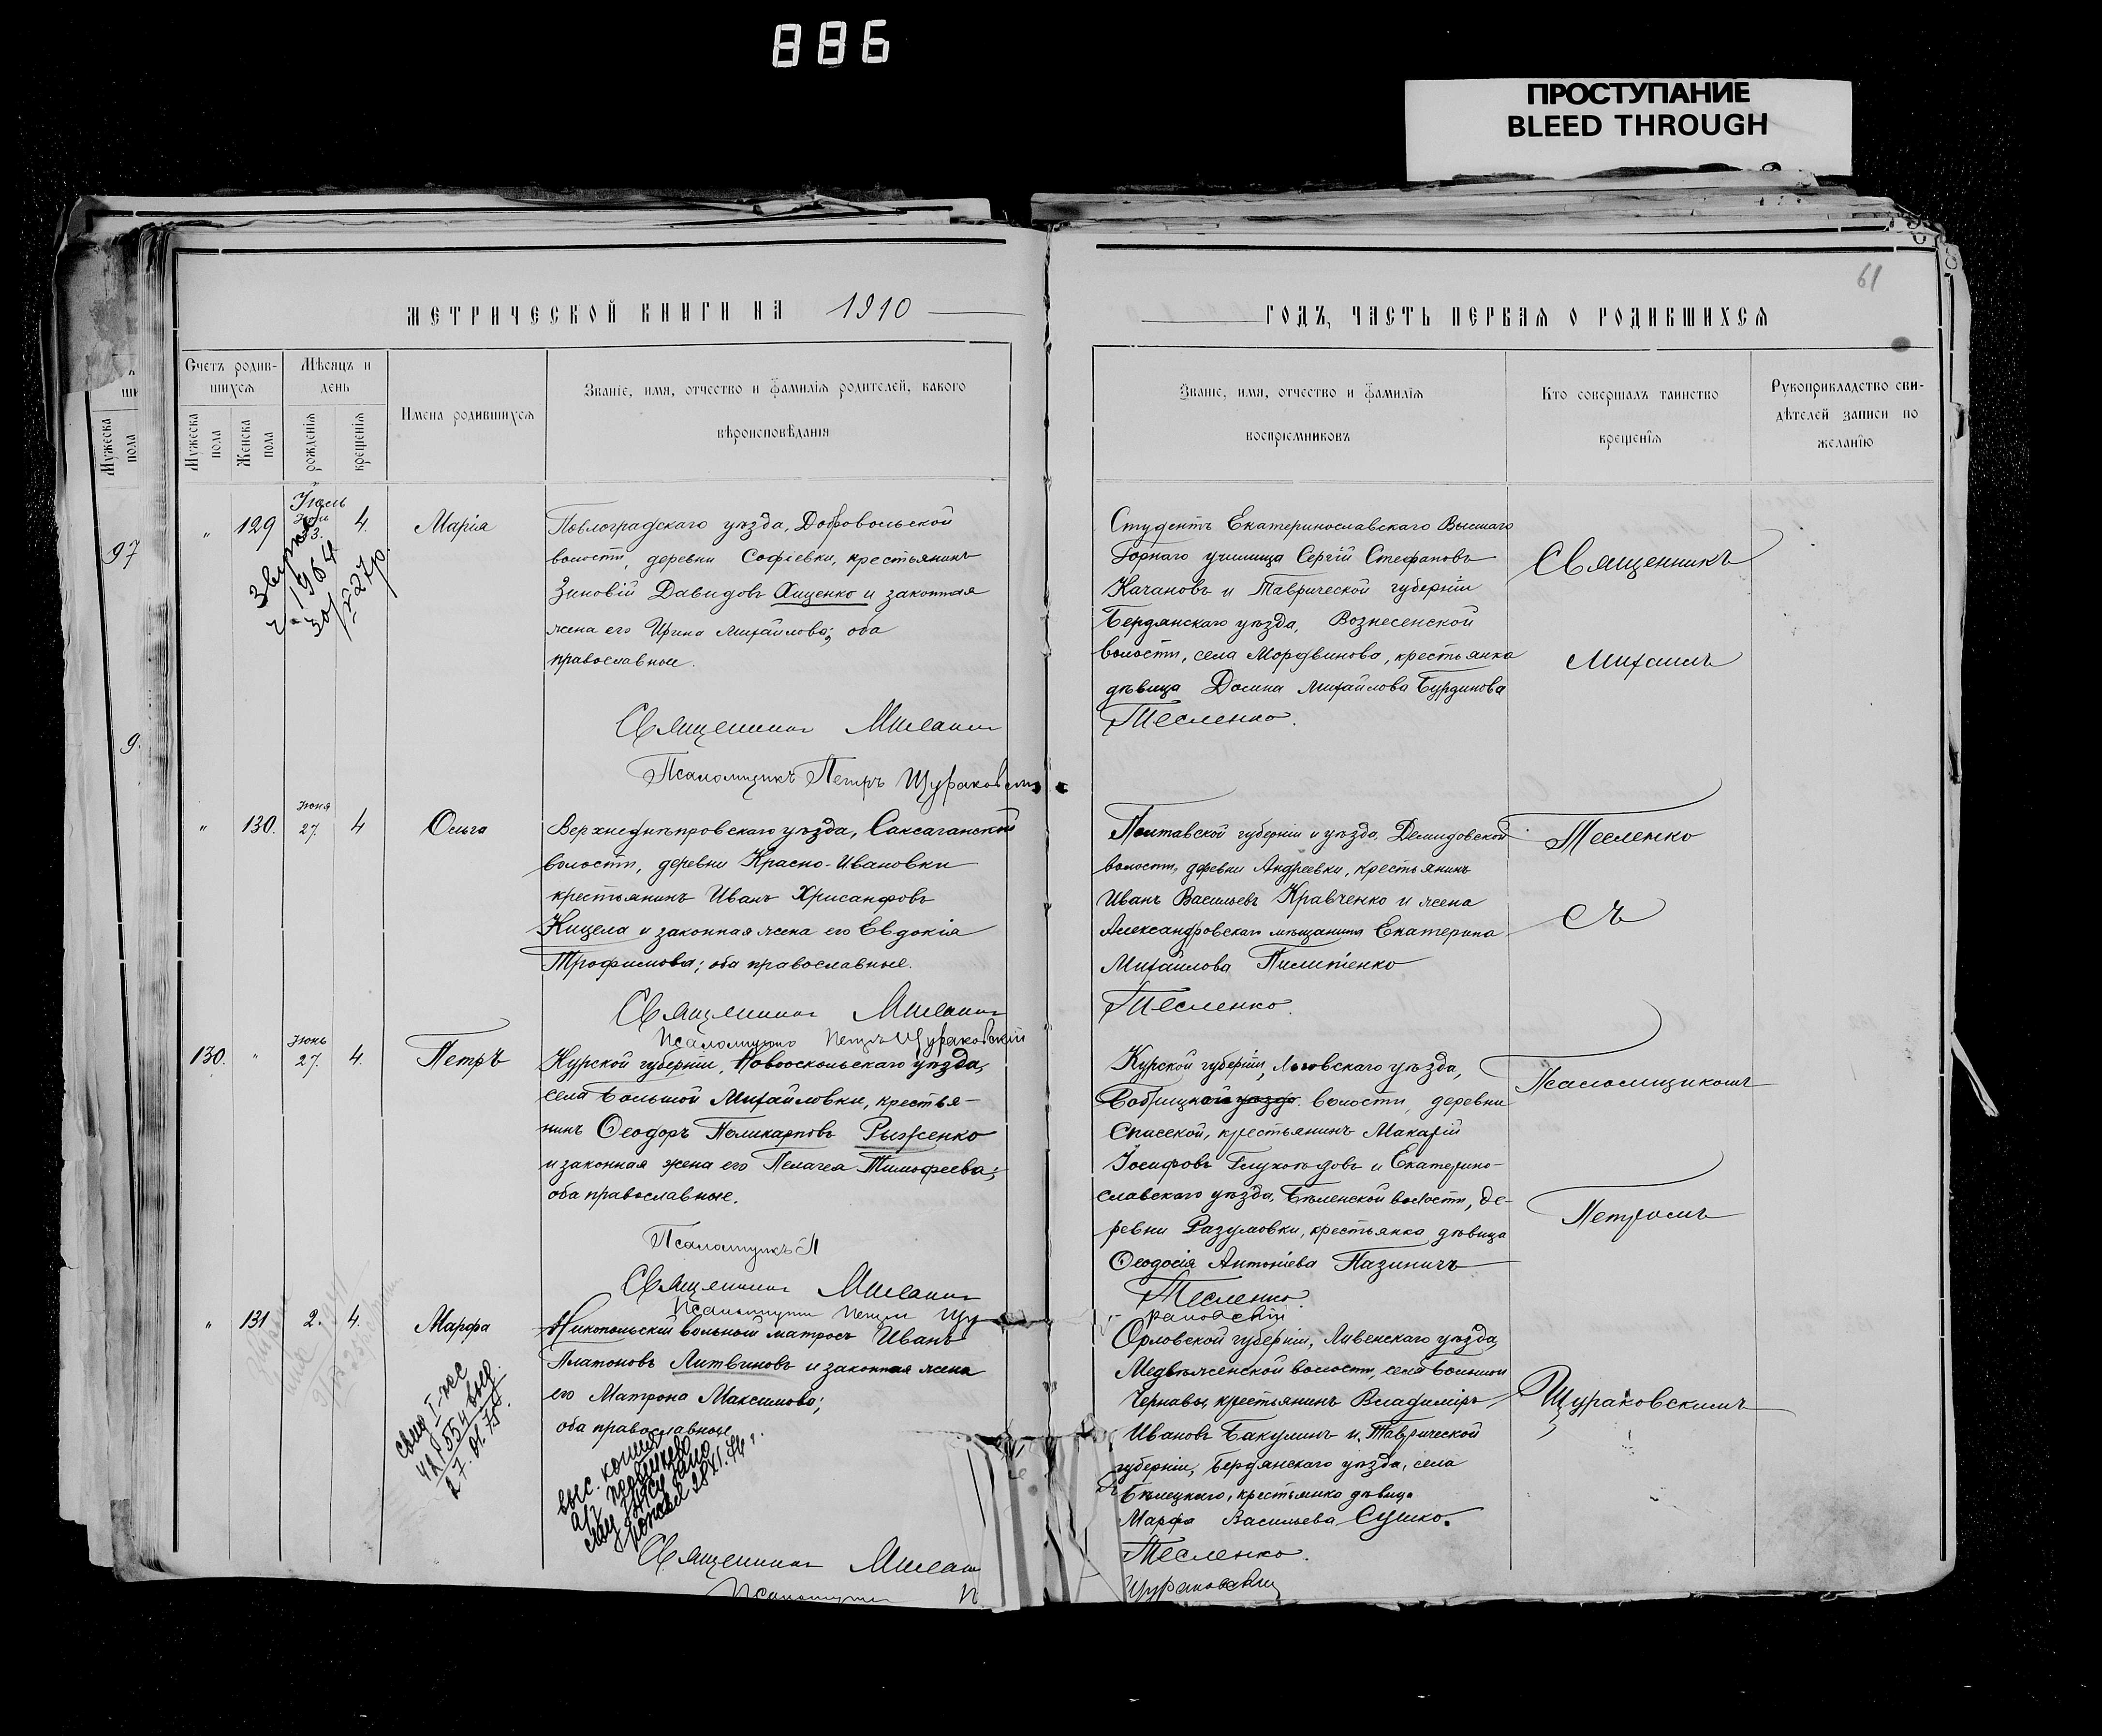 886
ПРОСТУПАНИЕ
BLEED THROUGH
61
МЕТРИЧЕСКОЙ КНИГИ НА 1910
ГОДЪ, ЧАСТЬ ПЕРВАЯ О РОДИВШИХСЯ
Счетъ родив-
шихся
Мужеска пола
Женска пола
Мѣсяцъ и
день
рожденія
крещенія
Имена родившихся
Званіе, имя, отчество и фамилія родителей, какого
вѣроисповѣданія
Званіе, имя, отчество и фамилія
воспріемниковъ
Кто совершалъ таинство
крещенія
Рукоприкладство сви-
дѣтелей записи по
желанію
Мужеска пола
97
9
Іюль
" 129 3. 4. Марія
Павлоградскаго уѣзда, Добровольской
волости, деревни Софіевки, крестьянинъ
Зиновій Давидовъ Ященко и законная
жена его Ирина Михайлова; оба
православные.
Священникъ
Псаломщикъ Петръ Щураковскій
Студентъ Екатеринославскаго Высшаго
Горнаго училища Сергій Стефановъ
Качановъ и Таврической губерніи
Бердянскаго уѣзда, Вознесенской
волости, села Мордвинова, крестьянка
дѣвица Домна Михайлова Бурдинова
Тесленко.
Священникъ
Михаилъ
1964
27р.
Іюня
" 130. 27. 4 Ольга
Верхнеднѣпровскаго уѣзда, Саксаганской
волости, деревни Красно-Ивановки
крестьянинъ Иванъ Хрисанфовъ
Кицела и законная жена его Евдокія
Трофимова; оба православные.
Священникъ
Псаломщикъ Петръ Щураковскій
Полтавской губерніи и уѣзда, Демидовской
волости, деревни Андреевки, крестьянинъ
Иванъ Васильевъ Кравченко и жена
Александровскаго мѣщанина Екатерина
Михайлова Пилипенко
Тесленко.
Тесленко
съ
Іюнь
130. " 27. 4. Петръ
Курской губерніи, Новооскольскаго уѣзда,
села Большой Михайловки, крестья-
нинъ Ѳеодоръ Поликарповъ Рыженко
и законная жена его Пелагея Тимофеева;
оба православные.
Псаломщикъ П
Священникъ
Псаломщикъ Петръ Щу-
Курской губерніи, Льговскаго уѣзда,
волости, деревни
Спасской, крестьянинъ Макарій
Іосифовъ Глухоѣдовъ и Екатерино-
славскаго уѣзда, Бѣленской волости, де-
ревни Разумовки, крестьянка дѣвица
Ѳеодосія Антоніева Пазиничъ
Тесленко.
раковскій
Псаломщикомъ
Петромъ
" 131 2. 4. Марфа
Никопольскій вольный матросъ Иванъ
Платоновъ Литвиновъ и законная жена
его Матрона Максимова;
оба православные
Священникъ
Псаломщикъ
Орловской губерніи, Ливенскаго уѣзда,
Медвѣженской волости, села Большой
Чернавы, крестьянинъ Владиміръ
Ивановъ Бакулинъ и Таврической
губерніи, Бердянскаго уѣзда, села
крестьянка дѣвица
Марфа Васильева Сушко.
Тесленко.
Щураковскій
Щураковскимъ